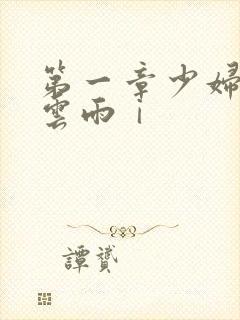 第一章少婦
雲雨｜
譚贇